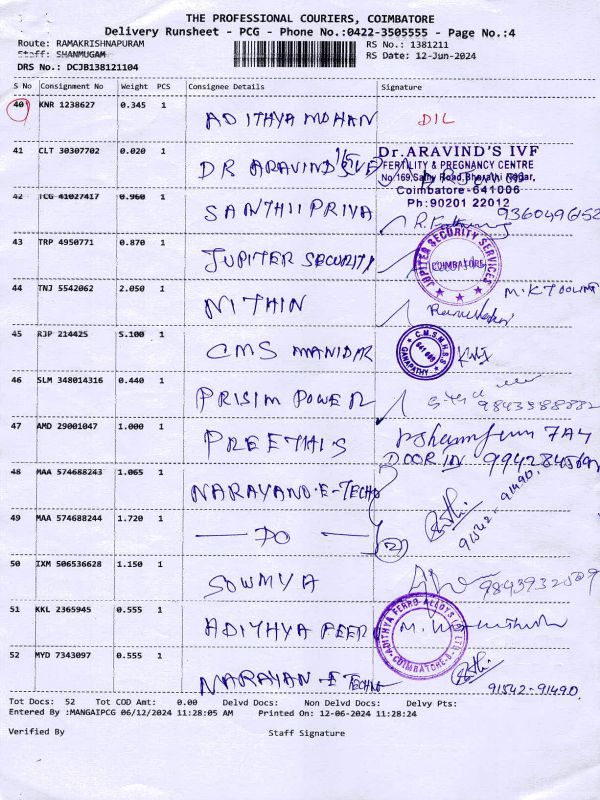 THE PROFESSIONAL COURIERS, COIMBATORE
Delivery Runsheet - PCG - Phone No.:0422-3505555 - Page No.:4
Route: RAMAKRISHNAPURAM RS No.: 1381211
Staff: SHANMUGAM RS Date: 12-Jun-2024
DRS No.: DCJB138121104
S No Consignment No Weight PCS Consignee Details Signature
40 KNR 1238627 0.345 1
ADITHYA MOHAN DIL
41 CLT 30307702 0.020 1
DR ARAVIND'S IVF
Dr.ARAVIND'S IVF
FERTILITY & PREGNANCY CENTRE
No.169, Sathy Road, Bharathi Nagar,
Coimbatore-641006
Ph:90201 22012
42 TCG 41027417 0.960 1
SANTHII PRIYA 9360496152
43 TRP 4950771 0.870 1
JUPITER SECURITY
JUPITER SECURITY SERVICES
COIMBATORE
44 TNJ 5542062 2.050 1
NITHIN M.K TOOLING
45 RJP 214425 5.100 1
CMS MANIDAR
C.M.S.M.H.S.S
641 006
GANAPATHY
46 SLM 348014316 0.440 1
PRISIM POWER 9843388832
47 AMD 29001047 1.000 1
PREETHI'S
DOOR IN
48 MAA 574688243 1.065 1
NARAYANO-E-TECHN
91542-91490.
49 MAA 574688244 1.720 1
— DO — 2
50 IXM 506536628 1.150 1
SOWMYA 9843932509
51 KKL 2365945 0.555 1
ADITHYA FERR
ADITHYA FERRO ALLOYS (P) LTD.
COIMBATORE-6
52 MYD 7343097 0.555 1
NARAYAN-E TECHNO
91542-91490.
Tot Docs: 52 Tot COD Amt: 0.00 Delvd Docs: Non Delvd Docs: Delvy Pts:
Entered By :MANGAIPCG 06/12/2024 11:28:05 AM Printed On: 12-06-2024 11:28:24
Verified By Staff Signature